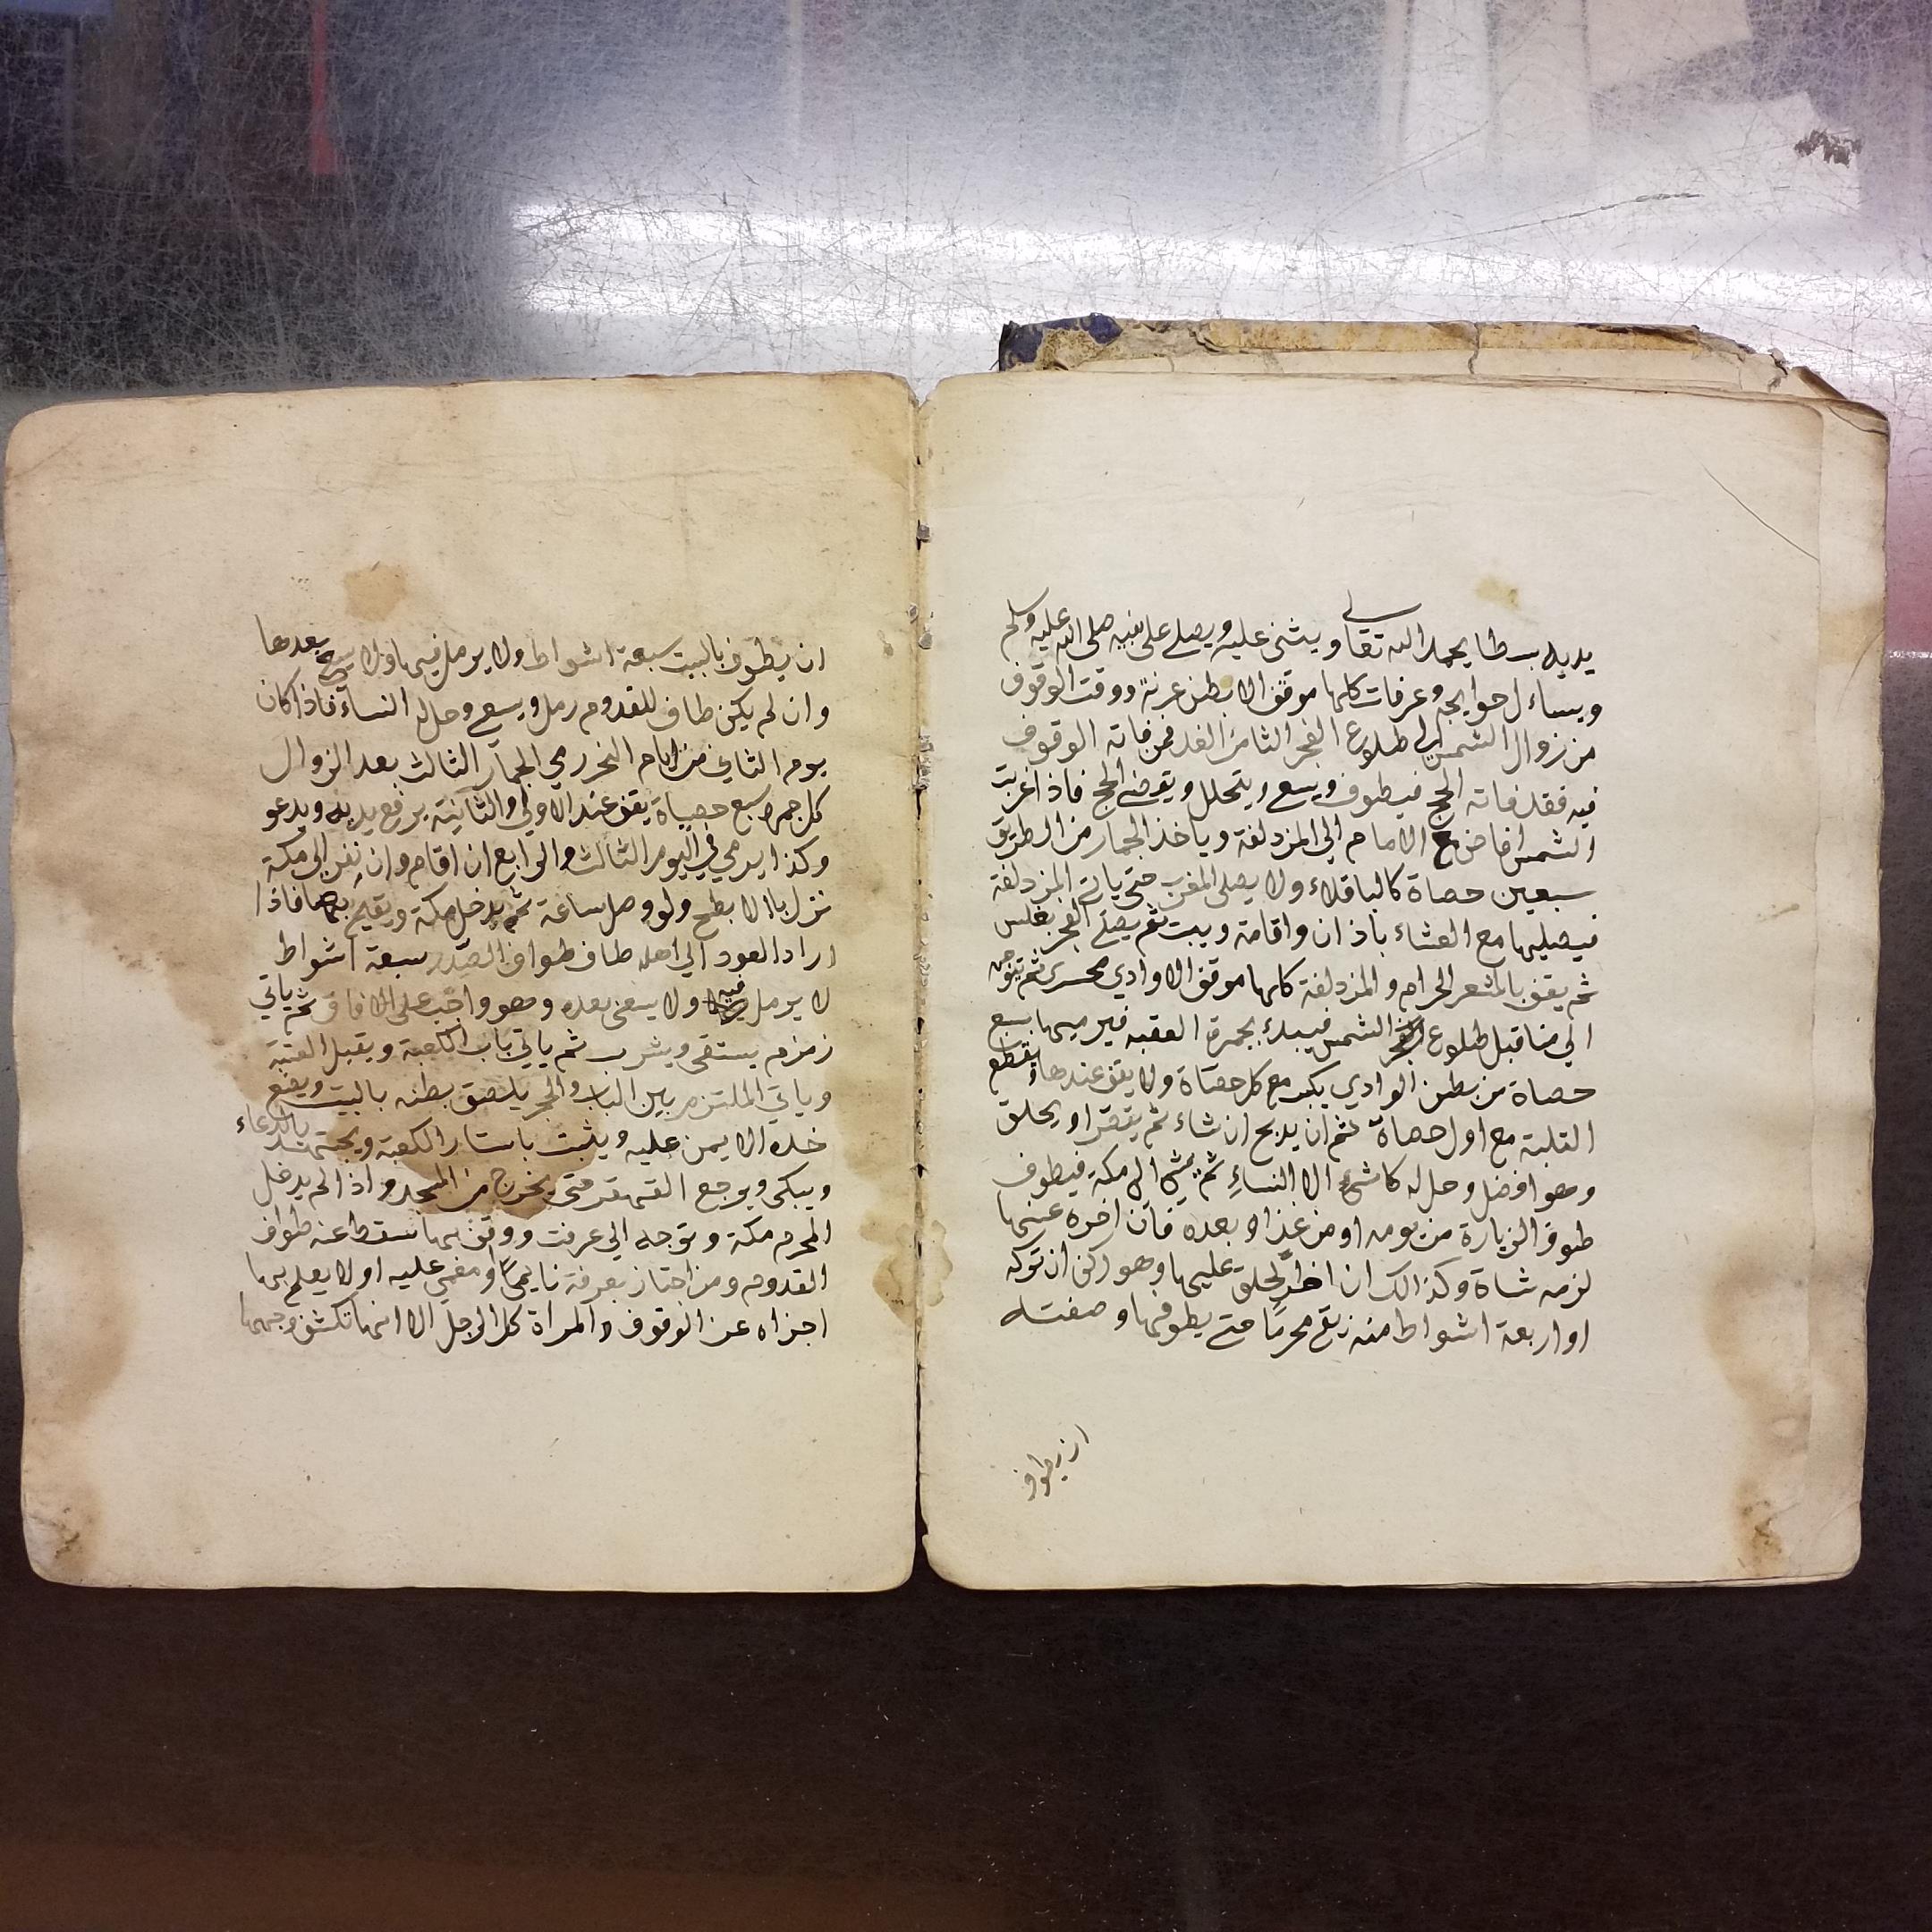 يديه بسطا يحمد الله تعالى ويثنى عليه ويصلي على نبيه صلى الله عليه وسلم
ويساءل حوايجه وعرفات كلها موقف الا بطن عرنة ووقت الوقوف
من زوال الشمس الى طلوع الفجر الثاني من الغد فمن فاته الوقوف
فيه فقد فاته الحج فيطوف ويسع ويتحلل ويقضي الحج فاذا غربت
الشمس افاض مع الامام الي المزدلفة وياخذ الجمار من الطريق
سبعين حصاة كالباقلاء ولا يصلي المغرب حتى ياتي المزدلفة
فيصليها مع العشاء باذان واقامة ويبت ثم يصلي الفجر بغلس
ثم يقف بالمشعر الحرام والمزدلفة كلها موقف الا وادي محسر ثم يتوجه
الي منا قبل طلوع الشمس فيبدء بجمرة العقبه فيرميها بسبع
حصاة من بطن الوادي يكبر مع كل حصاة ولا يقف عندها ويقطع
التلبية مع اول حصاة ثم ان يدبح ان شاء ثم يقصر او يحلق
وهو افضل وحل له كل شيء الا النساء ثم يمشي الى مكة فيطوف
طوف الزيارة من يومه او من غد او بعده فان اخره عنها
لزمه شاة وكذالك ان اخر الحلق عليها وهو ركن ان تركه
او اربعة اشواط منه بقي محرمًا حتي يطوفها وصفته
ان يطوف
ان يطوف بالبيت سبعة اشواط ولا يرمل فيها ولا يسعى بعدها
وان لم يكن طاف للقدوم رمل ويسع وحل له النساء فاذا كان
يوم الثاني من ايام النحر رمي الجمار الثالث بعد الزوال
كل جمرة سبع حصياة يقف عند الاولي والثانية يرفع يديه ويدعو
وكذا يرمي في اليوم الثالث والرابع ان اقام وان نفر الى مكة
نزل باالابطح ولو وصل ساعة ثم يدخل مكة ويقيم بها فاذا
اراد العود الي اهله طاف طواف الصدر سبعة اشواط
لا يرمل فيه ولا يسعى بعده وهو واجب على الافاق ثم ياتي
زمزم يستقى ويشرب ثم ياتي باب الكعبة ويقبل العتبة
وياتي الملتزم بين الباب والحجر يلصق بطنه بالبيت ويضع
خده الايمن عليه ويثبت باستار الكعبة ويجتهد بالدعاء
ويبكى ويرجع القهقرى حتى يخرج من المسجد واذا لم يدخل
المحرم مكة وتوجه الي عرفت ووقف بها سقط عنه طواف
القدوم ومن اجتاز بعرفة نايمًا او مغمي عليه او لا يعلم بها
اجزاه عن الوقوف والمراة كالرجل الا انها تكشف وجهها